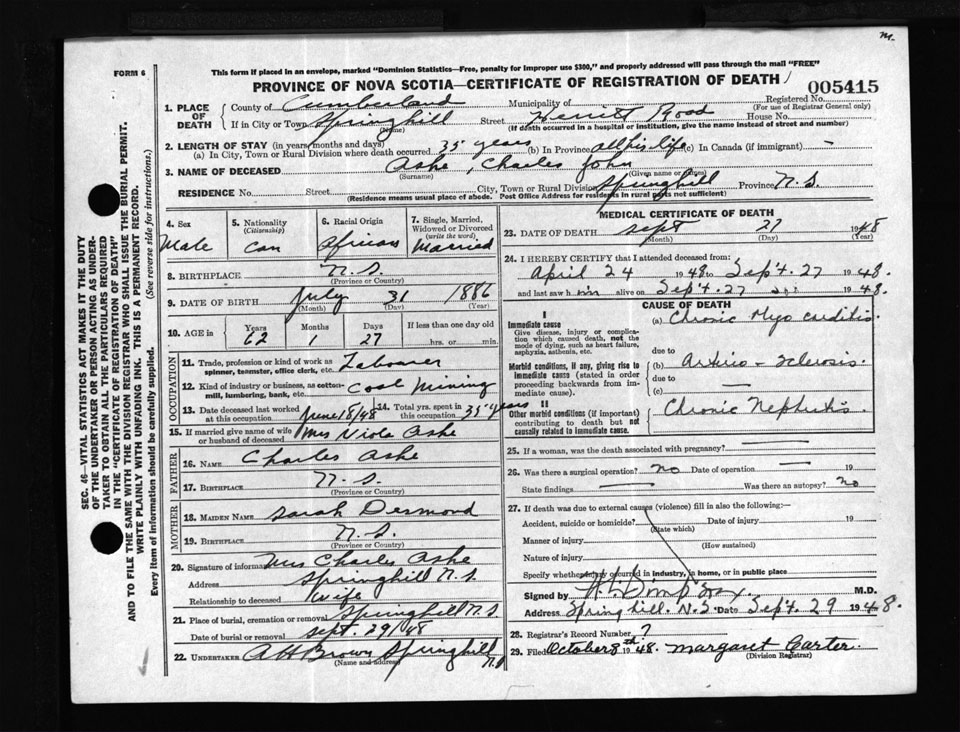 m.
FORM 6
This form if placed in an envelope, marked "Dominion Statistics—Free, penalty for improper use $300," and properly addressed will pass through the mail "FREE"
PROVINCE OF NOVA SCOTIA—CERTIFICATE OF REGISTRATION OF DEATH
005415
1. PLACE OF DEATH
County of Cumberland Municipality of Registered No.
(For use of Registrar General only)
If in City or Town Springhill Street Herritt Road House No.
(Name) (If death occurred in a hospital or institution, give the name instead of street and number)
2. LENGTH OF STAY (in years, months and days)
(a) In City, Town or Rural Division where death occurred 35 years (b) In Province all his life (c) In Canada (if immigrant) —
3. NAME OF DECEASED Ashe, Charles John
(Surname) (Given name or names)
RESIDENCE No. Street City, Town or Rural Division Springhill Province N.S.
(Residence means usual place of abode. Post Office Address for residents in rural parts not sufficient)
4. Sex Male
5. Nationality (Citizenship) Can
6. Racial Origin African
7. Single, Married, Widowed or Divorced (write the word) Married
8. BIRTHPLACE N.S.
(Province or Country)
9. DATE OF BIRTH July 31 1886
(Month) (Day) (Year)
10. AGE in Years Months Days If less than one day old
62 1 27 hrs. or min.
OCCUPATION
11. Trade, profession or kind of work as spinner, teamster, office clerk, etc. Laborer
12. Kind of industry or business, as cotton-mill, lumbering, bank, etc. Coal Mining
13. Date deceased last worked at this occupation June 18/48
14. Total yrs. spent in this occupation 35 years
15. If married give name of wife or husband of deceased Mrs Viola Ashe
FATHER
16. NAME Charles Ashe
17. BIRTHPLACE N.S.
(Province or Country)
MOTHER
18. MAIDEN NAME Sarah Desmond
19. BIRTHPLACE N.S.
(Province or Country)
20. Signature of informant Mrs Charles Ashe
Address Springhill N.S.
Relationship to deceased Wife
21. Place of burial, cremation or removal Springhill N.S.
Date of burial or removal Sept. 29/48
22. UNDERTAKER A H Brown Springhill N.S
(Name and address)
MEDICAL CERTIFICATE OF DEATH
23. DATE OF DEATH Sept 27 1948
(Month) (Day) (Year)
24. I HEREBY CERTIFY that I attended deceased from:
April 24 1948 to Sep't. 27 1948.
and last saw him alive on Sep't. 27 1948.
CAUSE OF DEATH
I
Immediate cause
Give disease, injury or complication which caused death, not the mode of dying, such as heart failure, asphyxia, asthenia, etc.
(a) Chronic Myo carditis.
due to
Morbid conditions, if any, giving rise to immediate cause (stated in order proceeding backwards from immediate cause).
(b) Arterio-sclerosis.
due to
(c) —
II
Other morbid conditions (if important) contributing to death but not causally related to immediate cause.
Chronic Nephritis.
25. If a woman, was the death associated with pregnancy? —
26. Was there a surgical operation? no Date of operation — 19
State findings — Was there an autopsy? no
27. If death was due to external causes (violence) fill in also the following:—
Accident, suicide or homicide? Date of injury 19
(State which)
Manner of injury
(How sustained)
Nature of injury
Specify whether injury occurred in industry, in home, or in public place
Signed by M.D.
Address Springhill. N.S. Date Sep't. 29 1948.
28. Registrar's Record Number 7
29. Filed October 8th 1948. Margaret Carter.
(Division Registrar)
SEC. 46—VITAL STATISTICS ACT MAKES IT THE DUTY
OF THE UNDERTAKER OR PERSON ACTING AS UNDER-
TAKER TO OBTAIN ALL THE PARTICULARS REQUIRED
IN THE "CERTIFICATE OF REGISTRATION OF DEATH"
AND TO FILE THE SAME WITH THE DIVISION REGISTRAR WHO SHALL ISSUE THE BURIAL PERMIT.
WRITE PLAINLY WITH UNFADING INK. THIS IS A PERMANENT RECORD.
Every item of information should be carefully supplied. (See reverse side for instructions.)